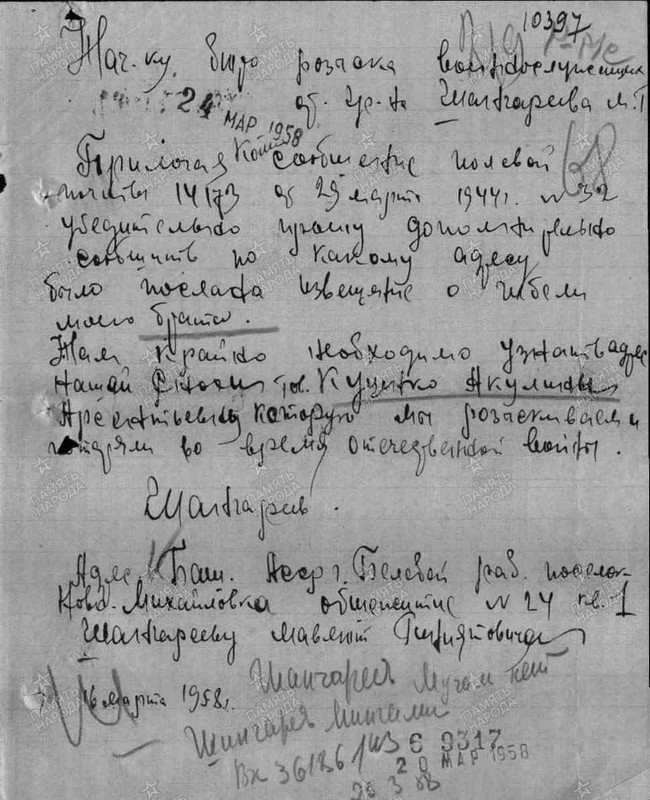 10397
Нач-ку бюро розыска военнослужащих
24 МАР 1958
от гр-на Шангареева М.Г
Прилагая копию сообщение полевой
почты 14173 от 29 марта 1944г. № 32
убедительно прошу дополнительно
сообщить по какому адресу
было послана извещение о гибели
моего брата.
Нам крайно необходимо узнать адрес
нашей тов. Куценко Акулины
которую мы розыскиваем и
потеряли во время отечественной войны.
Шангареев.
Адрес Баш. Асср г. Белебей раб. поселок
Ново-Михайловка общежитие № 24 кв. 1
Шангарееву Мавлют
16 марта 1958г.
Шангареев
Шангарев
Вх 36186
9317
20 МАР 1958